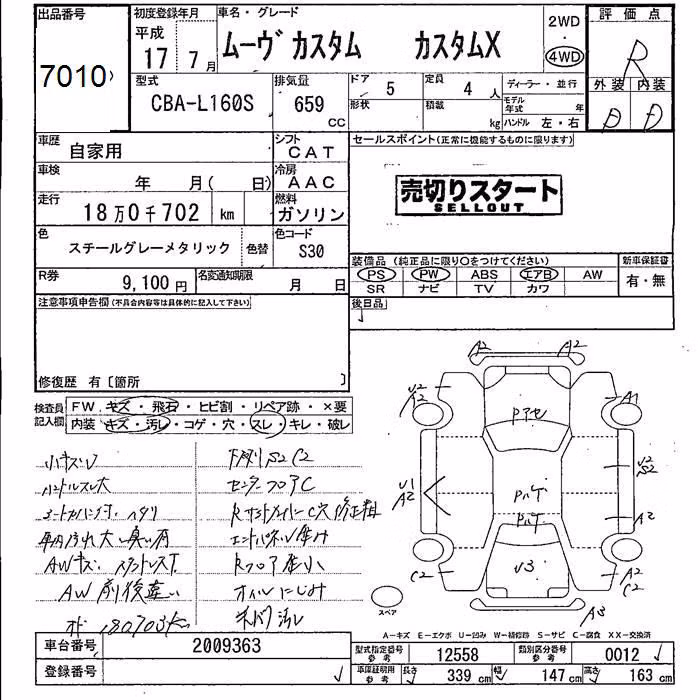 出品番号
7010
初度登録年月
平成
17 7月
車名・グレード
ムーヴ カスタム カスタムX
2WD
4WD
評価点
R
外装 内装
D D
型式
CBA-L160S
排気量
659
CC
ドア 5
形状
定員 4 人
積載 kg
ディーラー・並行
モデル年式 年
ハンドル 左・右
車歴
自家用
シフト
CAT
車検 年 月( 日)
冷房
AAC
走行
18万0千702 km
燃料
ガソリン
色
スチールグレーメタリック
色替
色コード
S30
R券 9,100円
名変通知期限 月 日
セールスポイント(正常に機能するものに限ります)
売切りスタート
SELLOUT
装備品(純正品に限り〇をつけてください)
PS PW ABS エアB AW
SR ナビ TV カワ
新車保証書
有・無
後日品
注意事項申告欄(不具合内容等は具体的に記入して下さい)
修復歴 有〔箇所 〕
検査員記入欄
FW キズ・飛石・ヒビ割・リペア跡・×要
内装 キズ・汚レ・コゲ・穴・スレ・キレ・破レ
小キズU
ハンドルスレ大
AW前後違い
180703km
下廻りS2C2
センターフロアC
Rフロア歪小
オイルにじみ
A2 A2
U2
A2
A1
Pアゼ
U1
A2
U2
S2
A2
U3
C2
A2
C2
A3
スペア
A-キズ E-エクボ U-凹み W-補修跡 S-サビ C-腐食 XX-交換済
車台番号
2009363
登録番号
型式指定番号 参考 12558
類別区分番号 参考 0012
車庫証明用 参考 長さ 339 cm 幅 147 cm 高さ 163 cm